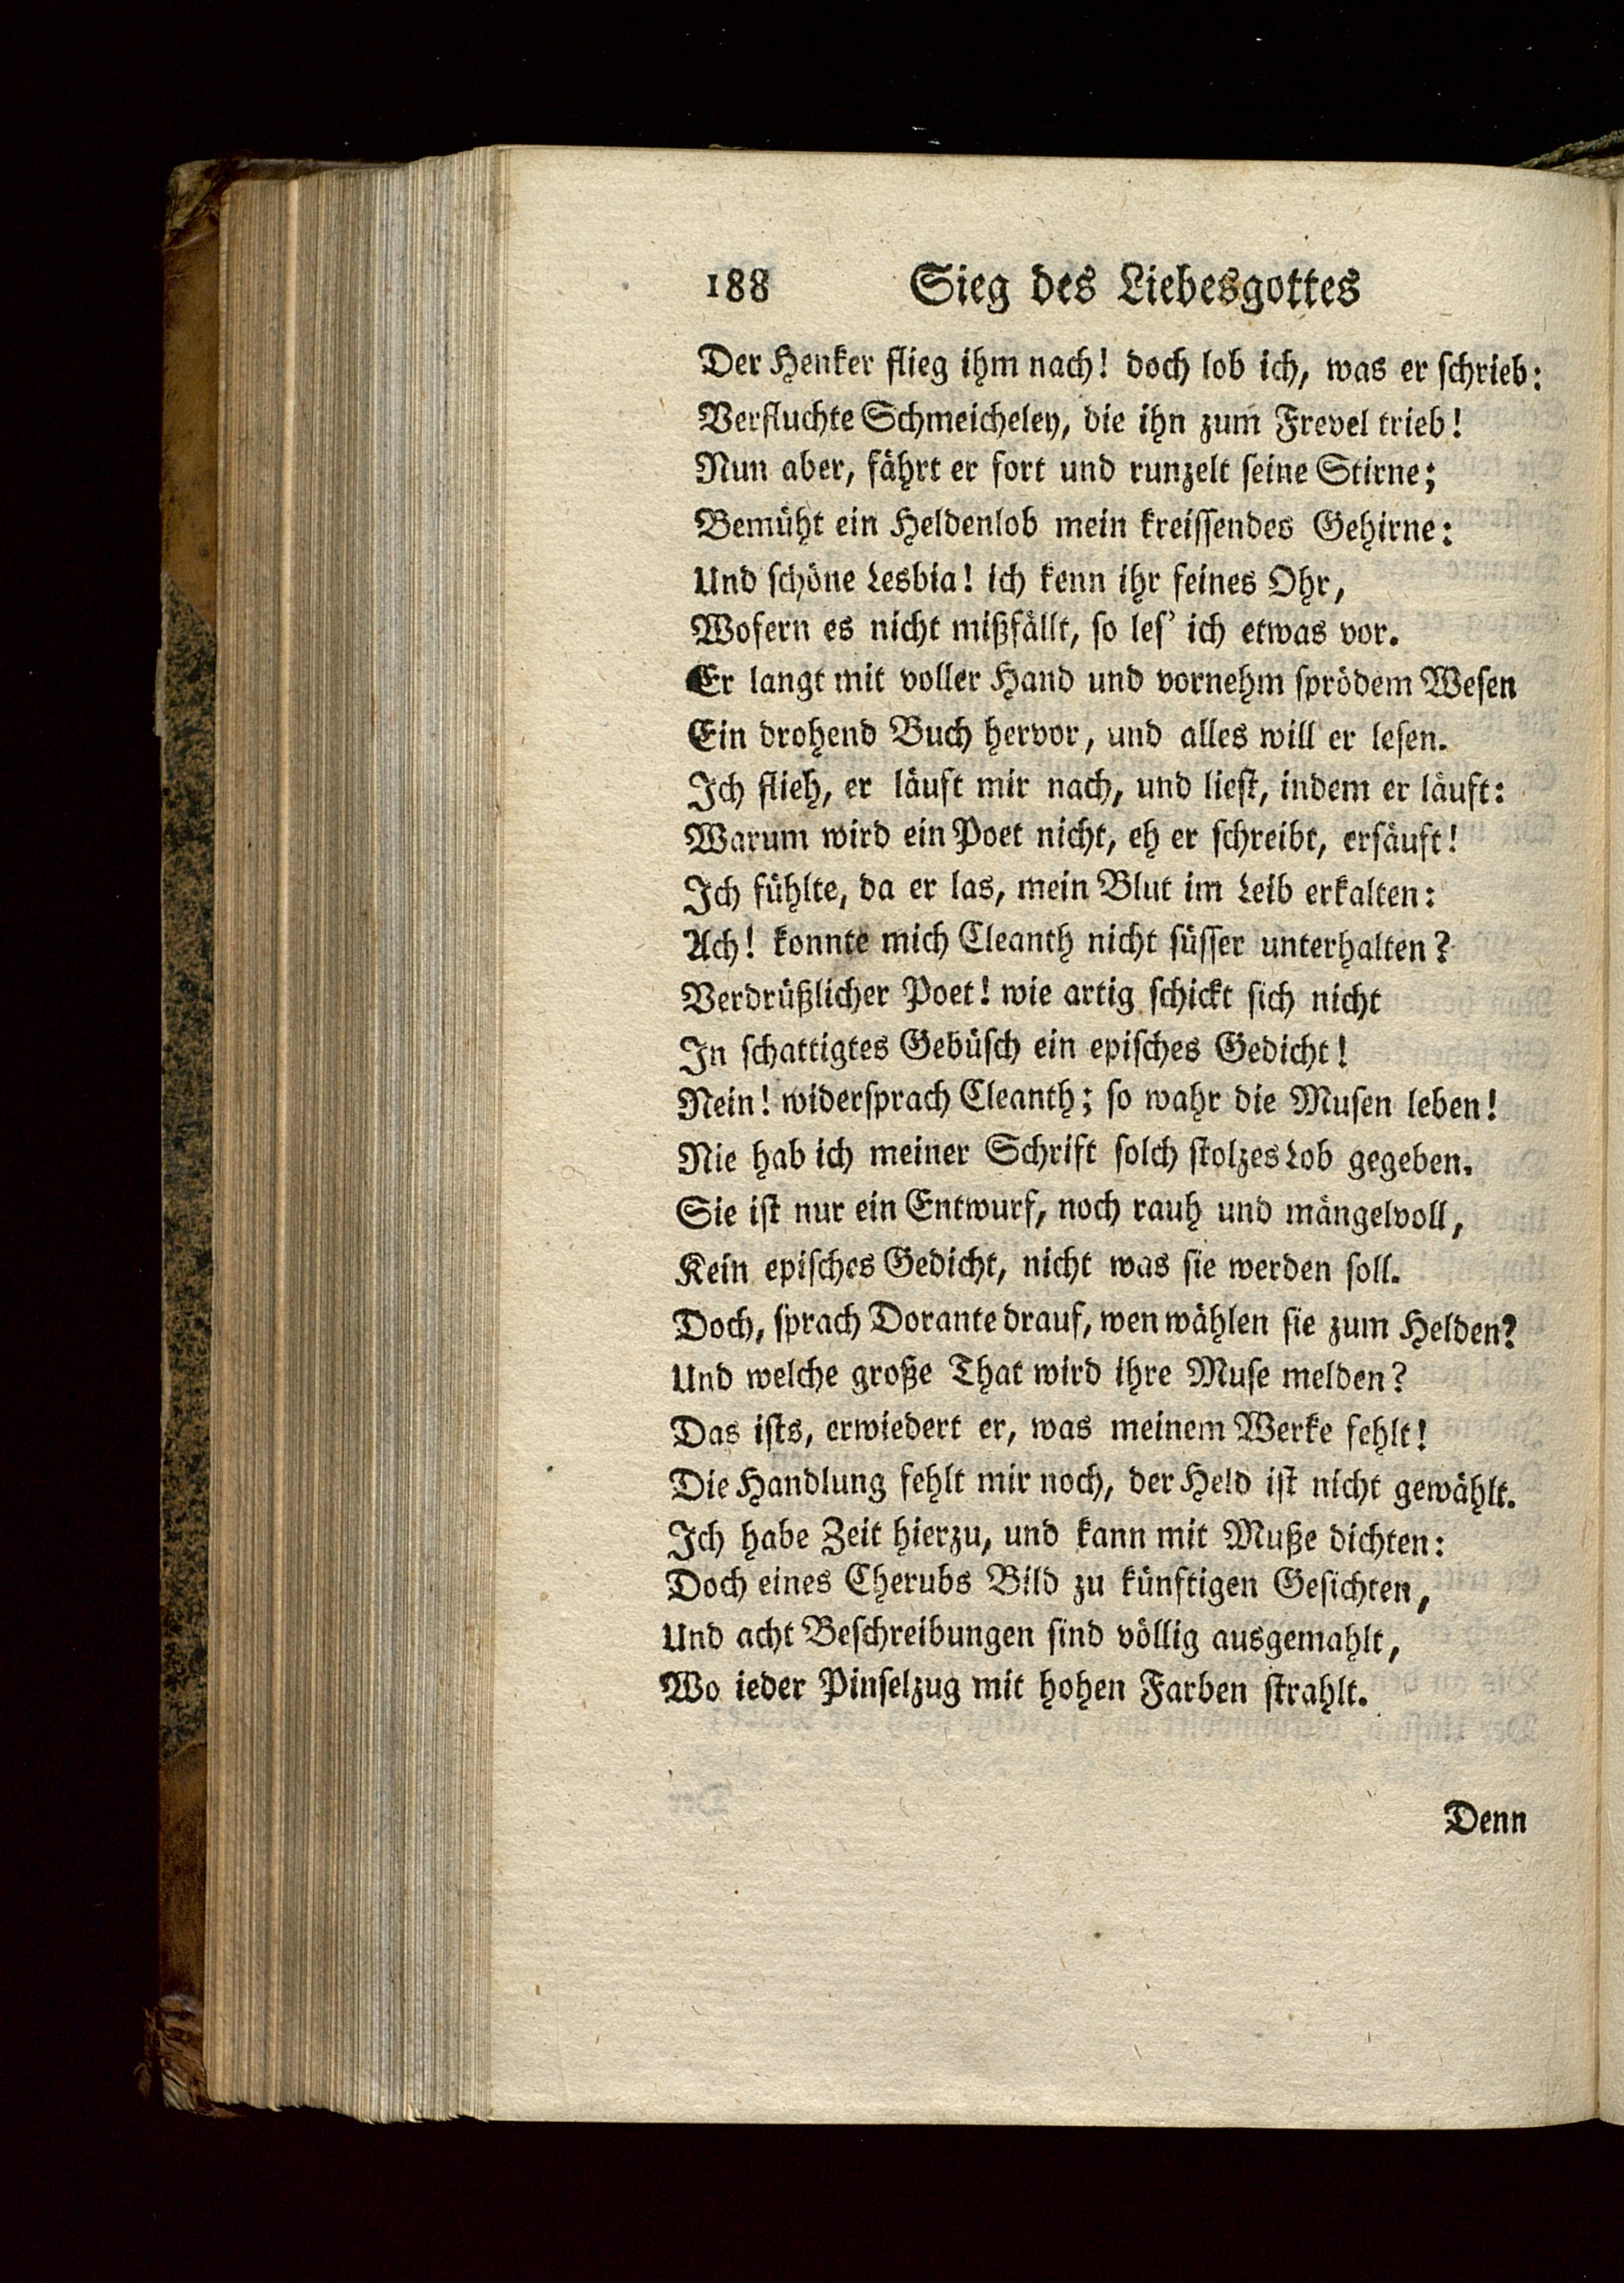 188 Sieg des Liebesgottes
Der Henker flieg ihm nach! doch lob ich, was er schrieb:
Verfluchte Schmeicheley, die ihn zum Frevel trieb!
Nun aber, fährt er fort und runzelt seine Stirne;
Bemüht ein Heldenlob mein kreissendes Gehirne:
Und schöne Lesbia! ich kenn ihr feines Ohr,
Wofern es nicht mißfällt, so les' ich etwas vor.
Er langt mit voller Hand und vornehm sprödem Wesen
Ein drohend Buch hervor, und alles will er lesen.
Ich flieh, er läuft mir nach, und liest, indem er läuft:
Warum wird ein Poet nicht, eh er schreibt, ersäuft!
Ich fühlte, da er las, mein Blut im Leib erkalten:
Ach! konnte mich Cleanth nicht süsser unterhalten?
Verdrüßlicher Poet! wie artig schickt sich nicht
In schattigtes Gebüsch ein episches Gedicht!
Nein! widersprach Cleanth; so wahr die Musen leben!
Nie hab ich meiner Schrift solch stolzes Lob gegeben.
Sie ist nur ein Entwurf, noch rauh und mängelvoll,
Kein episches Gedicht, nicht was sie werden soll.
Doch, sprach Dorante drauf, wen wählen sie zum Helden?
Und welche große That wird ihre Muse melden?
Das ists, erwiedert er, was meinem Werke fehlt!
Die Handlung fehlt mir noch, der Held ist nicht gewählt.
Ich habe Zeit hierzu, und kann mit Muße dichten:
Doch eines Cherubs Bild zu künftigen Gesichten,
Und acht Beschreibungen sind völlig ausgemahlt,
Wo ieder Pinselzug mit hohen Farben strahlt.
Denn